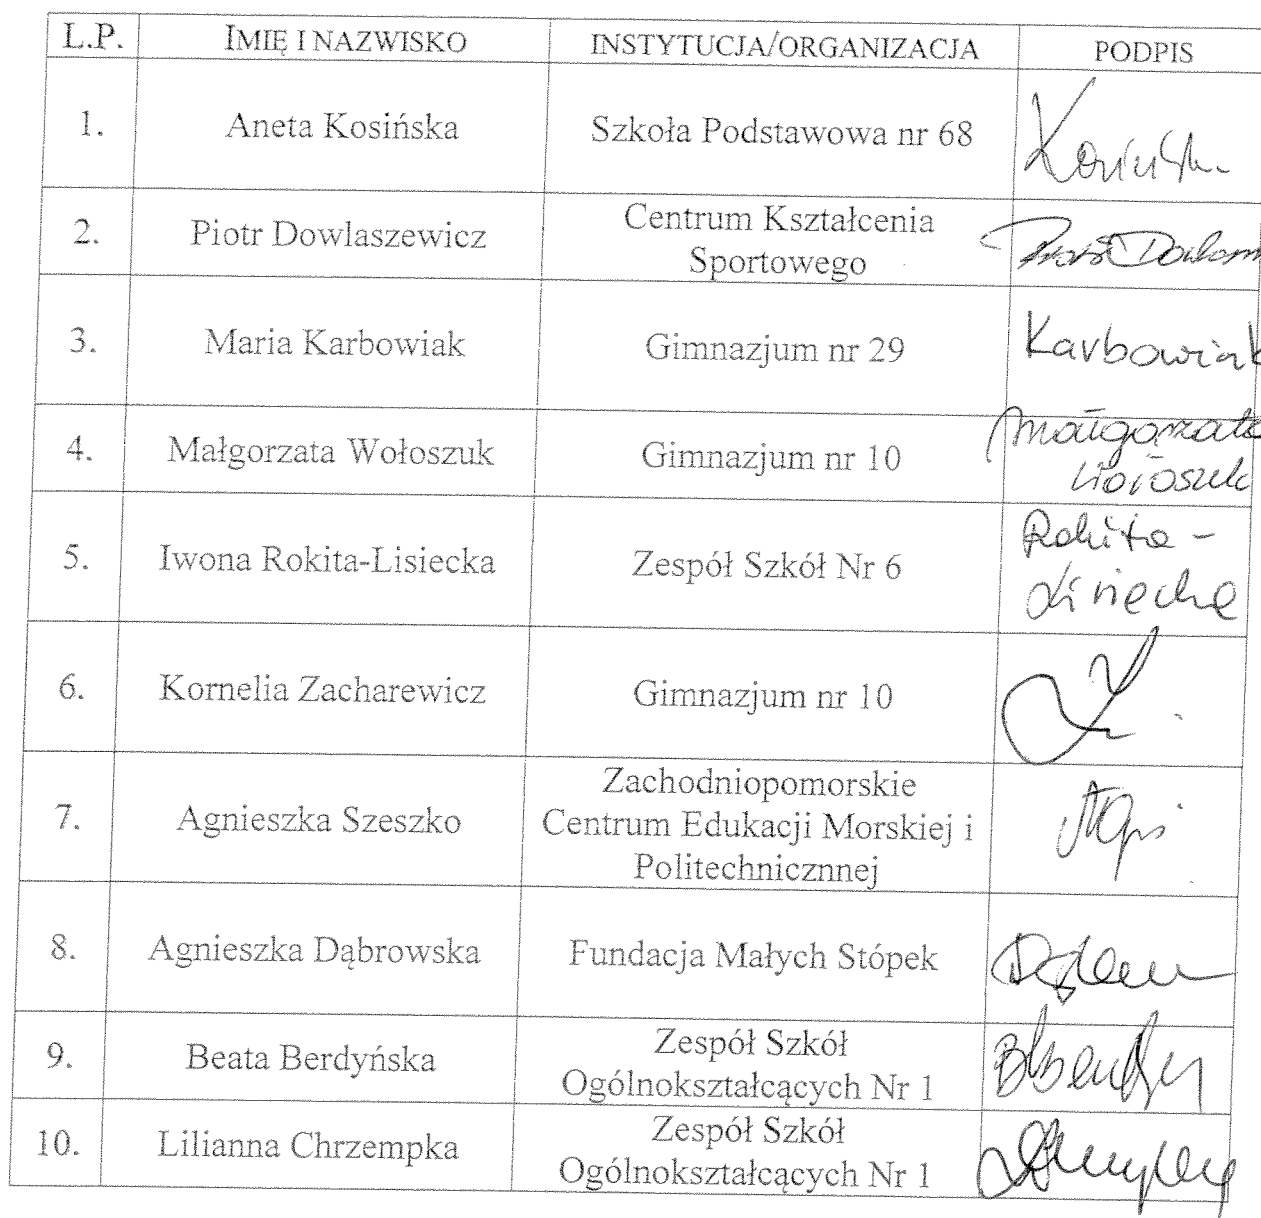 L.P. IMIĘ I NAZWISKO INSTYTUCJA/ORGANIZACJA PODPIS
1. Aneta Kosińska Szkoła Podstawowa nr 68
2. Piotr Dowlaszewicz Centrum Kształcenia
Sportowego
3. Maria Karbowiak Gimnazjum nr 29 Karbowiak
4. Małgorzata Wołoszuk Gimnazjum nr 10 Małgorzata
Wołoszuk
5. Iwona Rokita-Lisiecka Zespół Szkół Nr 6 Rokita -
Lisiecka
6. Kornelia Zacharewicz Gimnazjum nr 10
7. Agnieszka Szeszko Zachodniopomorskie
Centrum Edukacji Morskiej i
Politechnicznnej
8. Agnieszka Dąbrowska Fundacja Małych Stópek
9. Beata Berdyńska Zespół Szkół
Ogólnokształcących Nr 1
10. Lilianna Chrzempka Zespół Szkół
Ogólnokształcących Nr 1